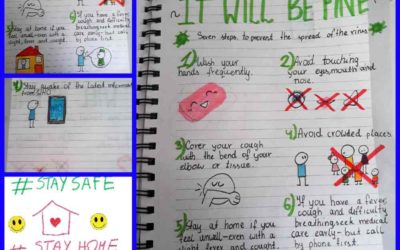 5) Stay at home if
you feel
unwell-even with a
slight fever and cough.
6) If you have a fever,
cough and difficulty
breathing, seek medical
care early-but call
by phone first.
Stay, awake of the latest
from WHO
#STAY SAFE
# STAY HOME
IT WILL BE FINE
Seven steps to prevent the spread of the virus
1) Wash your
hands frequently.
2) Avoid touching
your eyes, mouth and
nose.
3) Cover your cough
with the bend of your
elbow or tissue.
4) Avoid crowded places
5) Stay at home if you
feel unwell-even with a
slight fever and cough.
6) If you have a fever,
cough and difficulty
breathing, seek medical
care early-but call
by phone first.